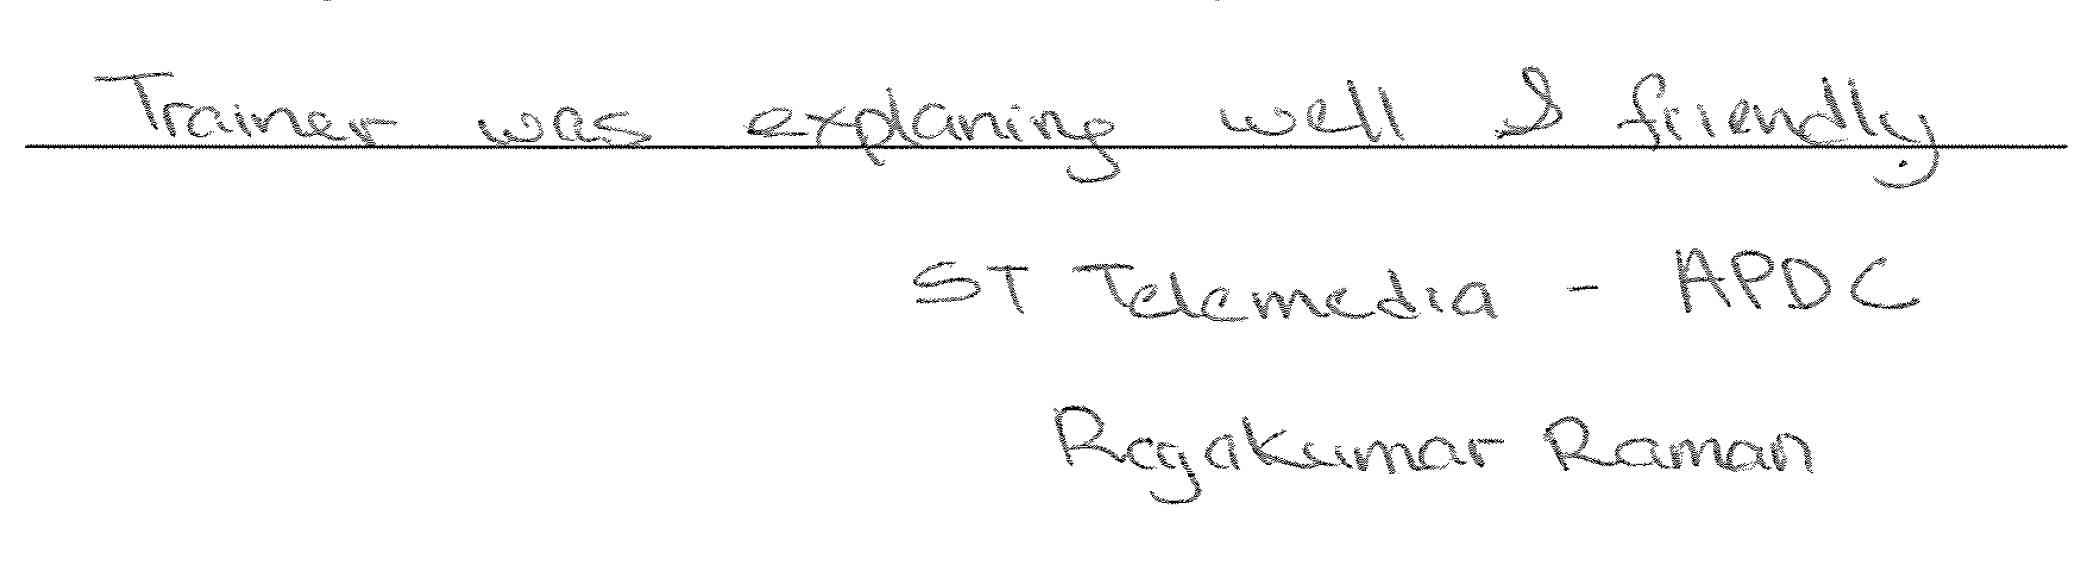 Trainer was explaning well & friendly.
ST Telemedia - APDC
Ragakumar Raman